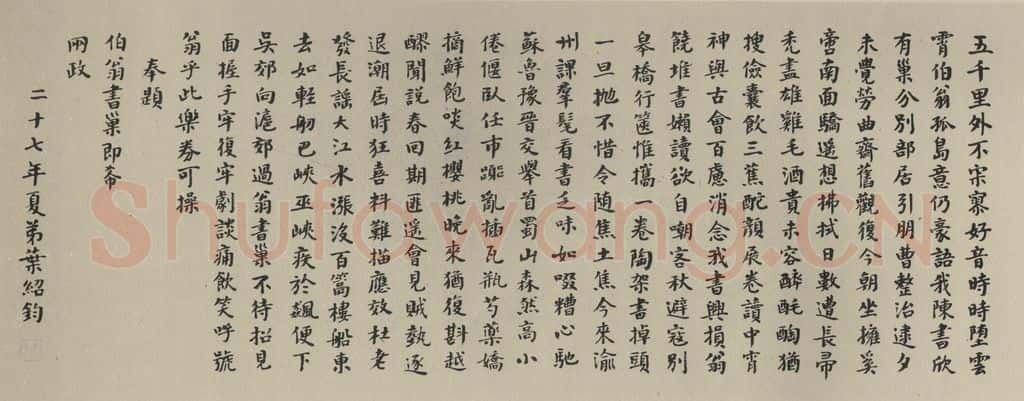 五千里外不宗寥好音時時墮雲
霄伯翁孤島意仍豪語我陳書欣
有巢分別部居引朋曹整治逮夕
未覺勞曲齋舊觀復今朝坐擁奚
啻南面驕遥想拂拭日數遭長帚
禿盡雄雞毛酒貴未容醉酕醄猶
搜儉囊飲三蕉酡顏展卷讀中宵
神與古會百慮消念我書興損翁
饒堆書嬾讀欲自嘲客秋避寇別
皋橋行篋惟攜一卷陶架書掉頭
一旦抛不惜今随焦土焦今來渝
州課羣髦看書乏味如啜糟心馳
蘇魯豫晉交舉首蜀山森然高小
倦偃臥任市囂亂插瓦瓶芍藥嬌
摘鮮飽啖紅櫻桃晚來猶復斟越
醪聞說春回期匪遥會見賊勢逐
退潮屆時狂喜料難描應效杜老
發長謠大江水漲没百篙樓船東
去如輕舠巴峽巫峽疾於飆便下
吳郊向滬郊過翁書巢不待招見
面握手牢復牢劇談痛飲笑呼號
翁乎此樂券可操
奉題
伯翁書巢即希
兩政
二十七年夏弟葉紹鈞
Shufawang.CN